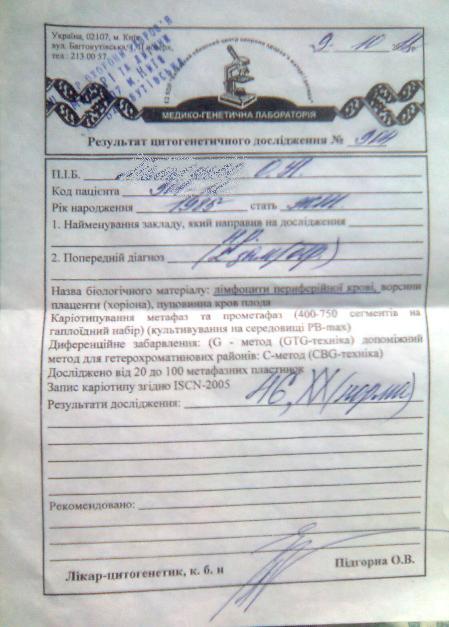 Україна, 02107, м. Київ
вул. Багговутівська, 1, II поверх,
тел.: 213 00 57
9. 10
МЕДИКО-ГЕНЕТИЧНА ЛАБОРАТОРІЯ
Результат цитогенетичного дослідження №
П.І.Б.
Код пацієнта
Рік народження 1985 стать
1. Найменування закладу, який направив на дослідження
2. Попередній діагноз
Назва біологічного матеріалу: лімфоцити периферійної крові, ворсини
плаценти (хоріона), пуповинна кров плода
Каріотипування метафаз та прометафаз (400-750 сегментів на
гаплоїдний набір) (культивування на середовищі PB-max)
Диференційне забарвлення: (G - метод (GTG-техніка) допоміжний
метод для гетерохроматинових районів: С-метод (CBG-техніка)
Досліджено від 20 до 100 метафазних пластинок
Запис каріотипу згідно ISCN-2005
Результати дослідження: 46, XX (норма)
Рекомендовано:
Лікар-цитогенетик, к. б. н Підгорна О.В.